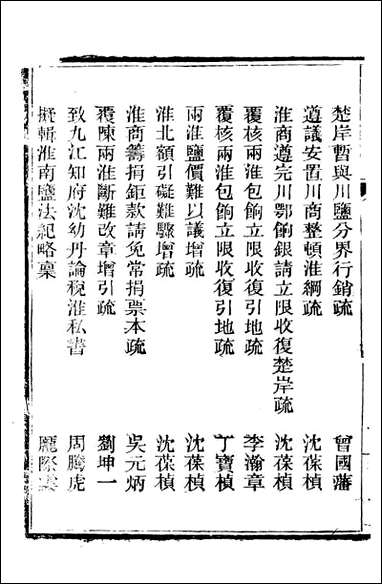 楚岸暫與川鹽分界行銷疏 曾國藩
遵議安置川商整頓淮綱疏 沈葆楨
淮商遵完川鄂餉銀請立限收復楚岸疏 沈葆楨
覆核兩淮包餉立限收復引地疏 李瀚章
覆核兩淮包餉立限收復引地疏 丁寶楨
兩淮鹽價難以議增疏 沈葆楨
淮北額引礙難驟增疏 沈葆楨
淮商籌捐鉅款請免常捐票本疏 吳元炳
覆陳兩淮斷難改章增引疏 劉坤一
致九江知府沈幼丹論稅淮私書 周騰虎
擬輯淮南鹽法紀略稟 龐際雲